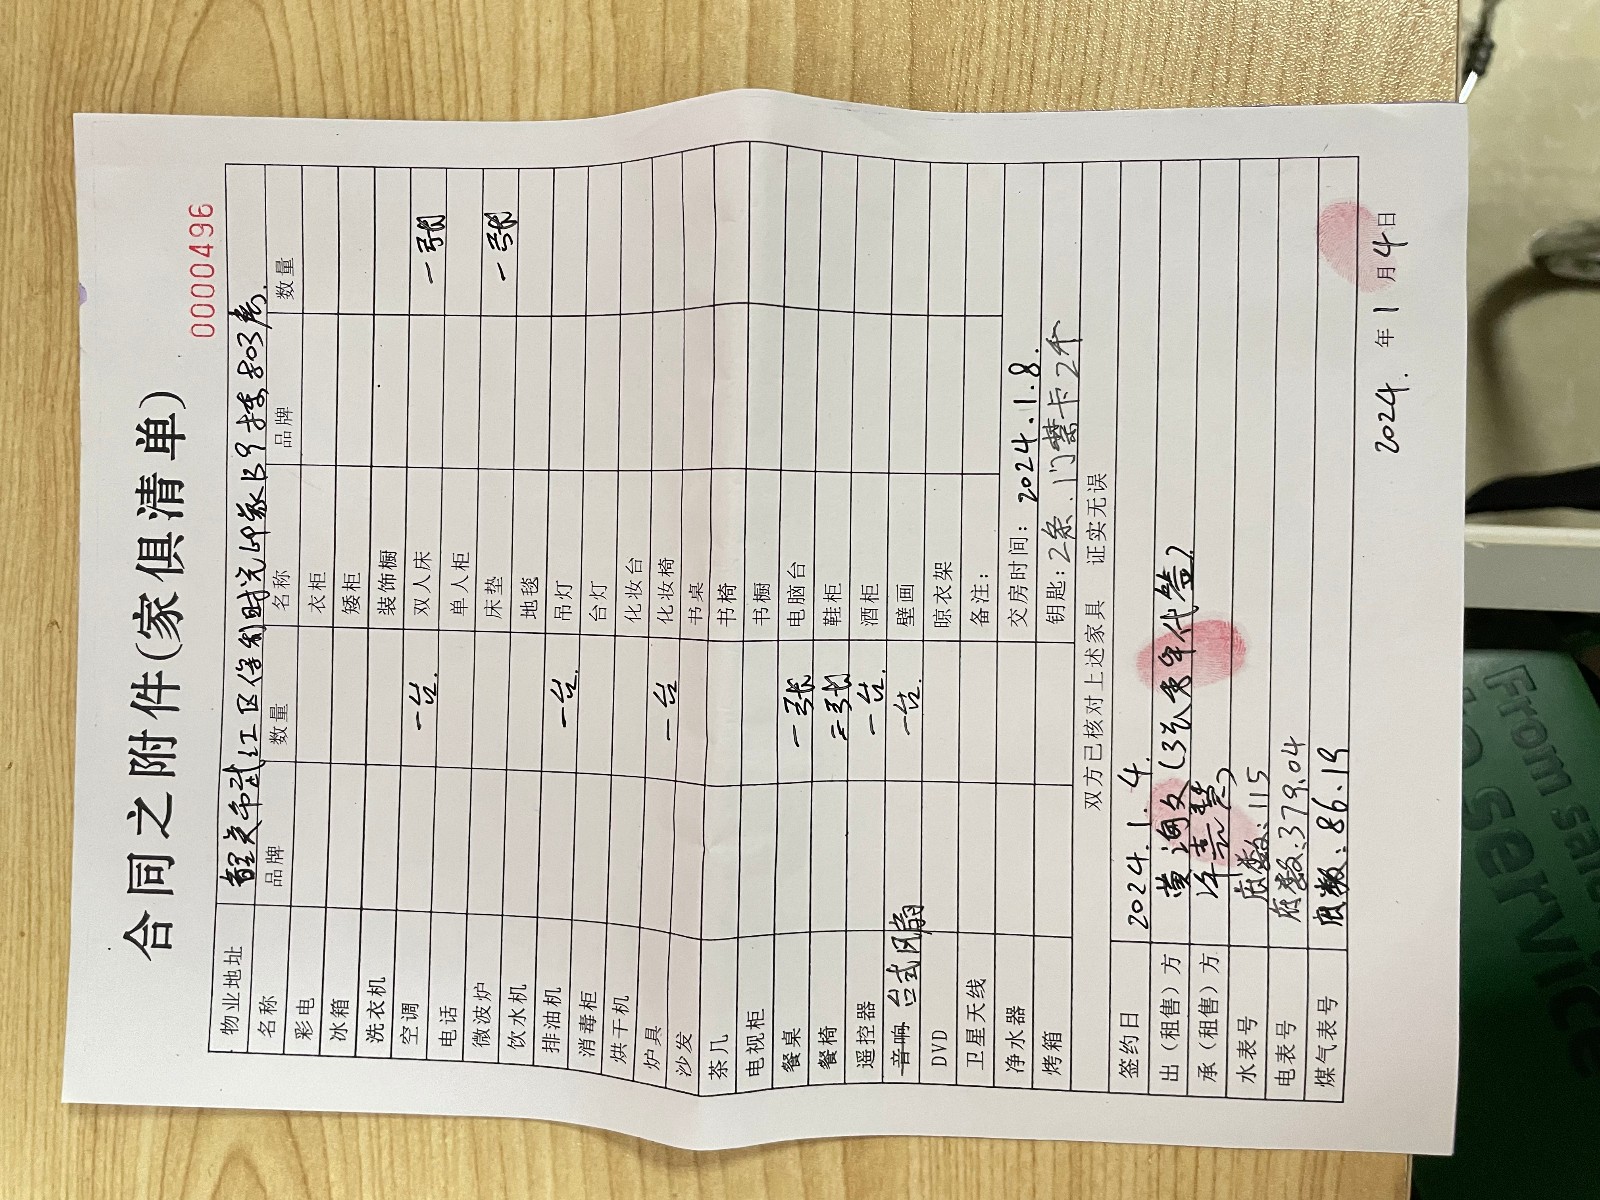 合同之附件(家俱清单)
0000496
物业地址 韶关市武江区保利时光印象B9栋803房.
名称 品牌 数量 名称 品牌 数量
彩电 衣柜
冰箱 矮柜
洗衣机 装饰橱
空调 一台. 双人床 一张
电话 单人柜
微波炉 床垫 一张
饮水机 地毯
排油机 一台. 吊灯
消毒柜 台灯
烘干机 化妆台
炉具 一台 化妆椅
沙发 书桌
茶几 书椅
电视柜 书橱
餐桌 一张 电脑台
餐椅 二张 鞋柜
遥控器 一台. 酒柜
音响 台式风扇 一台. 壁画
DVD 晾衣架
卫星天线 备注:
净水器 交房时间: 2024.1.8.
烤箱 钥匙: 2条.门禁卡2个
双方已核对上述家具 证实无误
签约日 2024.1.4.
出(租售)方 代签)
承(租售)方
水表号 底数: 115
电表号 底数: 379.04
煤气表号 底数: 86.19
2024. 年 1 月 4 日
From
service